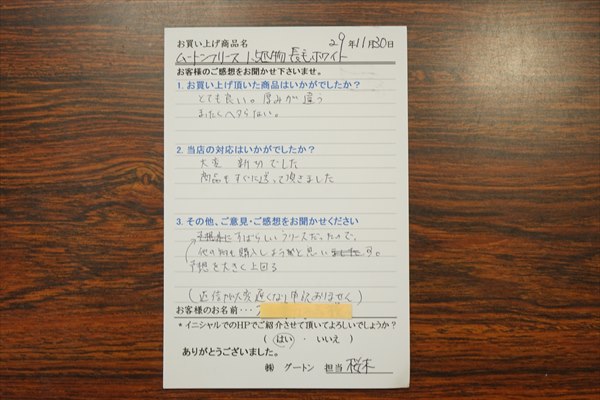 お買い上げ商品名 29年11月30日
ムートンフリース 1.5匹物 長毛ホワイト
お客様のご感想をお聞かせ下さいませ。
1. お買い上げ頂いた商品はいかがでしたか？
とても良い。厚みが違う
まったくヘタらない。
2. 当店の対応はいかがでしたか？
大変 親切でした
商品もすぐに送って頂きました
3. その他、ご意見・ご感想をお聞かせください
すばらしいフリースだったので、
他の物も購入しようかと思い
予想を大きく上回る
(返信が大変遅くなり申し訳ありません)
お客様のお名前・・・
* イニシャルでのHPでご紹介させて頂いてよろしいでしょうか？
( はい ・ いいえ )
ありがとうございました。
㈱ グートン 担当 桜木